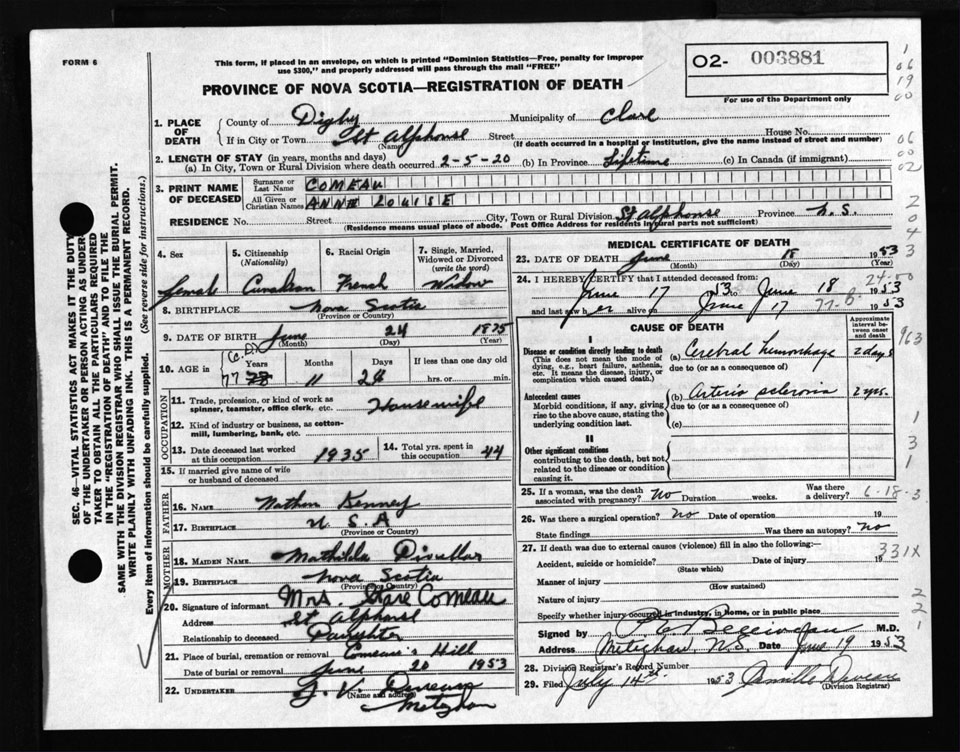 FORM 6
This form, if placed in an envelope, on which is printed "Dominion Statistics—Free, penalty for improper
use $300," and properly addressed will pass through the mail "FREE"
O2- 003881
For use of the Department only
PROVINCE OF NOVA SCOTIA—REGISTRATION OF DEATH
1. PLACE OF DEATH
County of Digby Municipality of Clare
If in City or Town St Alphonse Street House No.
(Name) (If death occurred in a hospital or institution, give the name instead of street and number)
2. LENGTH OF STAY (in years, months and days)
(a) In City, Town or Rural Division where death occurred 2-5-20 (b) In Province Lifetime (c) In Canada (if immigrant)
3. PRINT NAME OF DECEASED
Surname or Last Name COMEAU
All Given or Christian Names ANNE LOUISE
RESIDENCE No. Street City, Town or Rural Division St Alphonse Province N.S.
(Residence means usual place of abode. Post Office Address for residents in rural parts not sufficient)
4. Sex
Female
5. Citizenship (Nationality)
Canadian
6. Racial Origin
French
7. Single, Married, Widowed or Divorced (write the word)
Widow
8. BIRTHPLACE Nova Scotia
(Province or Country)
9. DATE OF BIRTH June 24 1875
(Month) (Day) (Year)
10. AGE in Years Months Days If less than one day old
(C.D.) 77 78 11 24 hrs. or min.
OCCUPATION
11. Trade, profession, or kind of work as spinner, teamster, office clerk, etc. Housewife
12. Kind of industry or business, as cotton-mill, lumbering, bank, etc.
13. Date deceased last worked at this occupation 1935
14. Total yrs. spent in this occupation 44
15. If married give name of wife or husband of deceased
FATHER
16. NAME Nathan Kenney
17. BIRTHPLACE U.S.A
(Province or Country)
MOTHER
18. MAIDEN NAME Mathilda
19. BIRTHPLACE Nova Scotia
(Province or Country)
20. Signature of informant Mrs. Comeau
Address St Alphonse
Relationship to deceased Daughter
21. Place of burial, cremation or removal Comeau's Hill
Date of burial or removal June 20 1953
22. UNDERTAKER
(Name and address)
Meteghan
MEDICAL CERTIFICATE OF DEATH
23. DATE OF DEATH June 18 1953
(Month) (Day) (Year)
24. I HEREBY CERTIFY that I attended deceased from:
June 17 1953 to June 18 1953
and last saw her alive on June 17 1953
CAUSE OF DEATH
Approximate interval between onset and death
I
Disease or condition directly leading to death
(This does not mean the mode of dying, e.g., heart failure, asthenia, etc. It means the disease, injury, or complication which caused death.)
(a) Cerebral hemorrhage 2 days
due to (or as a consequence of)
Antecedent causes
Morbid conditions, if any, giving rise to the above cause, stating the underlying condition last.
(b) Arterio sclerosis 2 yrs.
due to (or as a consequence of)
(c)
II
Other significant conditions
contributing to the death, but not related to the disease or condition causing it.
25. If a woman, was the death associated with pregnancy? No Duration weeks. Was there a delivery?
6-18-3
26. Was there a surgical operation? No Date of operation 19
State findings Was there an autopsy? No
27. If death was due to external causes (violence) fill in also the following:—
331X
Accident, suicide or homicide? Date of injury 19
(State which)
Manner of injury
(How sustained)
Nature of injury
Specify whether injury occurred in industry, in home, or in public place
Signed by M.D.
Address Meteghan, N.S. Date June 19 1953
28. Division Registrar's Record Number
29. Filed July 14th 1953
(Division Registrar)
SEC. 46—VITAL STATISTICS ACT MAKES IT THE DUTY
OF THE UNDERTAKER OR PERSON ACTING AS UNDER-
TAKER TO OBTAIN ALL THE PARTICULARS REQUIRED
IN THE "REGISTRATION OF DEATH" AND TO FILE THE
SAME WITH THE DIVISION REGISTRAR WHO SHALL ISSUE THE BURIAL PERMIT.
WRITE PLAINLY WITH UNFADING INK. THIS IS A PERMANENT RECORD.
Every item of information should be carefully supplied. (See reverse side for instructions.)